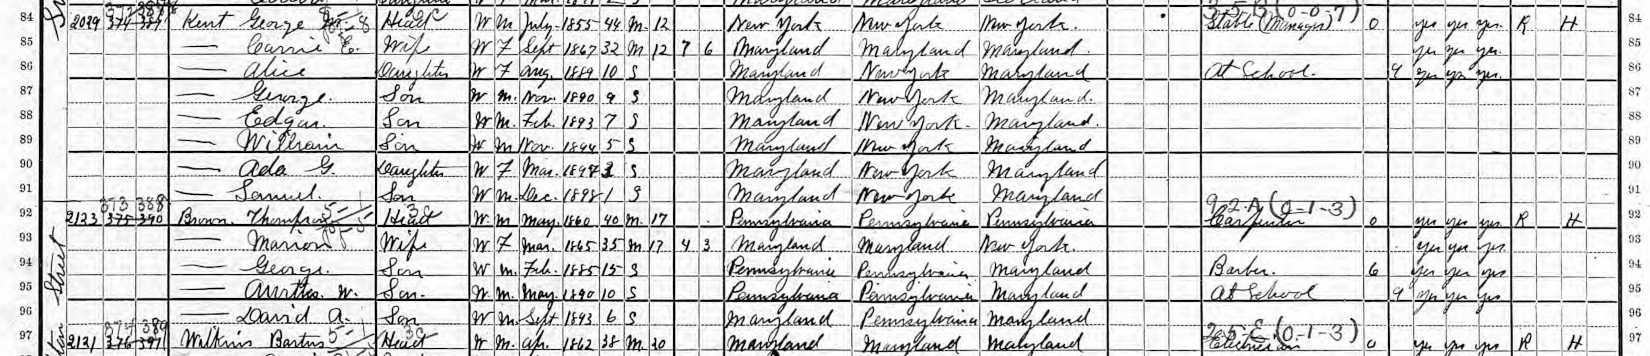 84 2029 Kent George M. Head W M July 1855 44 M 12 New York New York New York Stable (Manager) 0 yes yes yes R H 84
85 — Carrie Wife W F Sept 1867 32 M 12 7 6 Maryland Maryland Maryland. yes yes yes. 85
86 — Alice Daughter W F Aug. 1889 10 S Maryland New York Maryland At School. 9 yes yes yes. 86
87 — George. Son W M. Nov. 1890 9 S Maryland New York Maryland. 87
88 — Edgar. Son W M. Feb. 1893 7 S Maryland New York. Maryland. 88
89 — William Son W M Nov. 1894 5 S Maryland New York Maryland 89
90 — Ada G. Daughter W F Mar. Maryland New York Maryland 90
91 — Samuel. Son W M. Dec. 1898 1 S Maryland New York Maryland 91
373 388 9-2-A (0-1-3)
92 2123 375 390 Brown. Thompson Head W M May. 1860 40 M. 17 Pennsylvania Pennsylvania Pennsylvania Carpenter 0 yes yes yes R H 92
93 — Marion Wife W F Mar. 1865 35 M 17 4 3 Maryland Maryland New York. yes yes yes 93
94 — George. Son W M. Feb. 1885 15 S Pennsylvania Pennsylvania Maryland Barber. 6 yes yes yes 94
95 — W. Son. W M. May. 1890 10 S Pennsylvania Pennsylvania Maryland At School 9 yes yes yes 95
96 — David A. Son W M. Sept 1893 6 S Maryland Pennsylvania Maryland 96
374 389 (0-1-3)
97 2121 376 391 Watkins Bartus Head W M. Apr. 1862 38 M. 20 Maryland Maryland Maryland Electrician 0 yes yes yes R H 97
Street